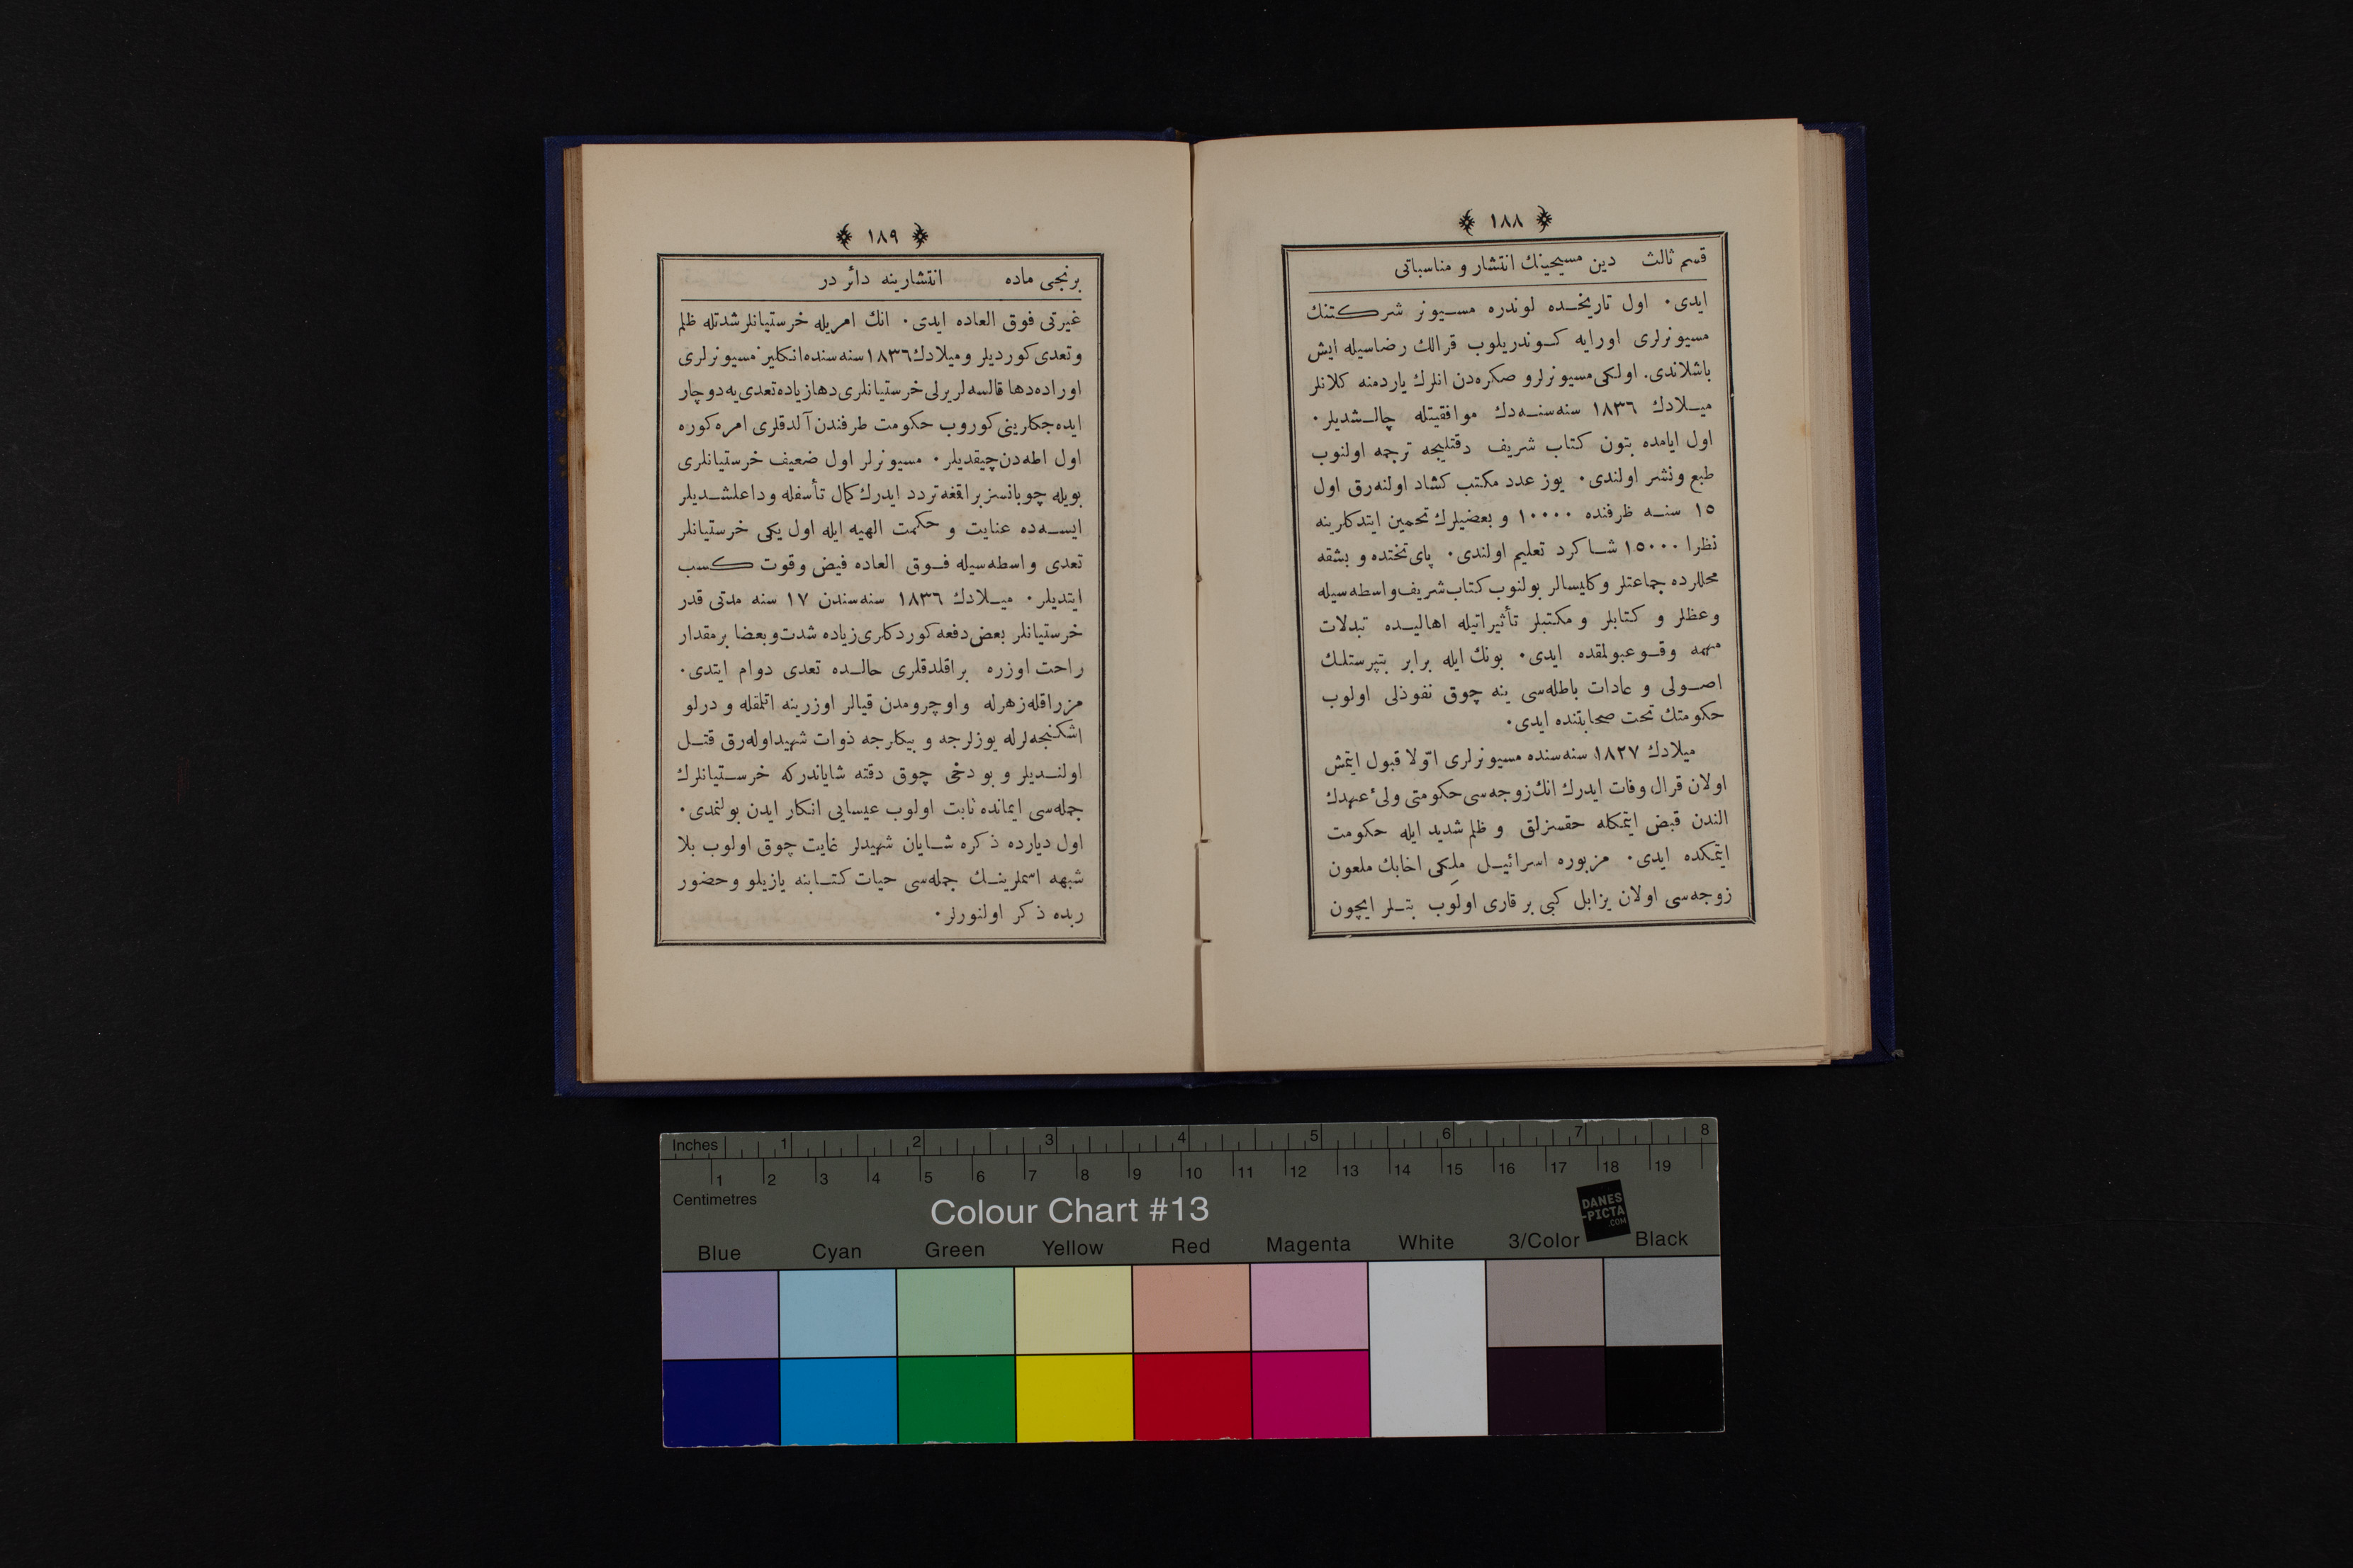 ١٨٨
قسم ثالث دین مسیحینك انتشار و مناسباتی
ایدی. اول تاریخده لوندره مسیونر شركتنك
مسیونرلری اورایه كوندریلوب قرالك رضاسیله ایش
باشلاندی. اولكی مسیونرلر و صكره دن انلرك یاردمنه كلانلر
میلادك ١٨٣٦ سنه سنه دك موافقیتله چالشدیلر.
اول ایامده بتون كتاب شریف دقتلیجه ترجمه اولنوب
طبع ونشر اولندی. یوز عدد مكتب كشاد اولنه رق اول
١٥ سنه ظرفنده ١٠٠٠٠ و بعضیلرك تخمین ایتدكلرینه
نظرا ١٥٠٠٠ شاكرد تعلیم اولندی. پای تختده و بشقه
محللرده جماعتلر و كلیسالر بولنوب كتاب شریف واسطه سیله
وعظلر و كتابلر و مكتبلر تأثیراتیله اهالیده تبدلات
مهمه وقوعبولمقده ایدی. بونك ایله برابر بتپرستلك
اصولی و عادات باطله سی ینه چوق نفوذلی اولوب
حكومتك تحت صحابتنده ایدی.
میلادك ١٨٢٧ سنه سنده مسیونرلری اوّلا قبول ایتمش
اولان قرال وفات ایدرك انك زوجه سی حكومتی ولیٔ عهدك
الندن قبض ایتمكله حقسزلق و ظلم شدید ایله حكومت
ایتمكده ایدی. مزبوره اسرائیل ملِكی اخابك ملعون
زوجه سی اولان یزابل كبی بر قاری اولوب بتلر ایچون
١٨٩
برنجی ماده انتشارینه دائر در
غیرتی فوق العاده ایدی. انك امریله خرستیانلر شدتله ظلم
و تعدی كوردیلر و میلادك ١٨٣٦ سنه سنده انكلیز مسیونرلری
اوراده دها قالسه لر یرلی خرستیانلری دها زیاده تعدی یه دوچار
ایده جكلرینی كوروب حكومت طرفندن آلدقلری امره كوره
اول اطه دن چیقدیلر. مسیونرلر اول ضعیف خرستیانلری
بویله چوبانسز براقغه تردد ایدرك كمال تأسفله وداعلشدیلر
ایسه ده عنایت و حكمت الهیه ایله اول یكی خرستیانلر
تعدی واسطه سیله فوق العاده فیض وقوت كسب
ایتدیلر. میلادك ١٨٣٦ سنه سندن ١٧ سنه مدتی قدر
خرستیانلر بعض دفعه كوردكلری زیاده شدت و بعضا برمقدار
راحت اوزره براقلدقلری حالده تعدی دوام ایتدی.
مزراقله زهرله واوچرومدن قیالر اوزرینه اتلمقله و درلو
اشكنجه لرله یوزلرجه و بیكلرجه ذوات شهید اوله رق قتل
اولندیلر و بو دخی چوق دقته شایاندر كه خرستیانلرك
جمله سی ایمانده ثابت اولوب عیسایی انكار ایدن بولنمدی.
اول دیارده ذكره شایان شهیدلر غایت چوق اولوب بلا
شبهه اسملرینك جمله سی حیات كتابنه یازیلو وحضور
ربده ذكر اولنورلر.
Inches 1 2 3 4 5 6 7 8
1 2 3 4 5 6 7 8 9 10 11 12 13 14 15 16 17 18 19
Centimetres
Colour Chart #13
DANES
-PICTA
.COM
Blue Cyan Green Yellow Red Magenta White 3/Color Black